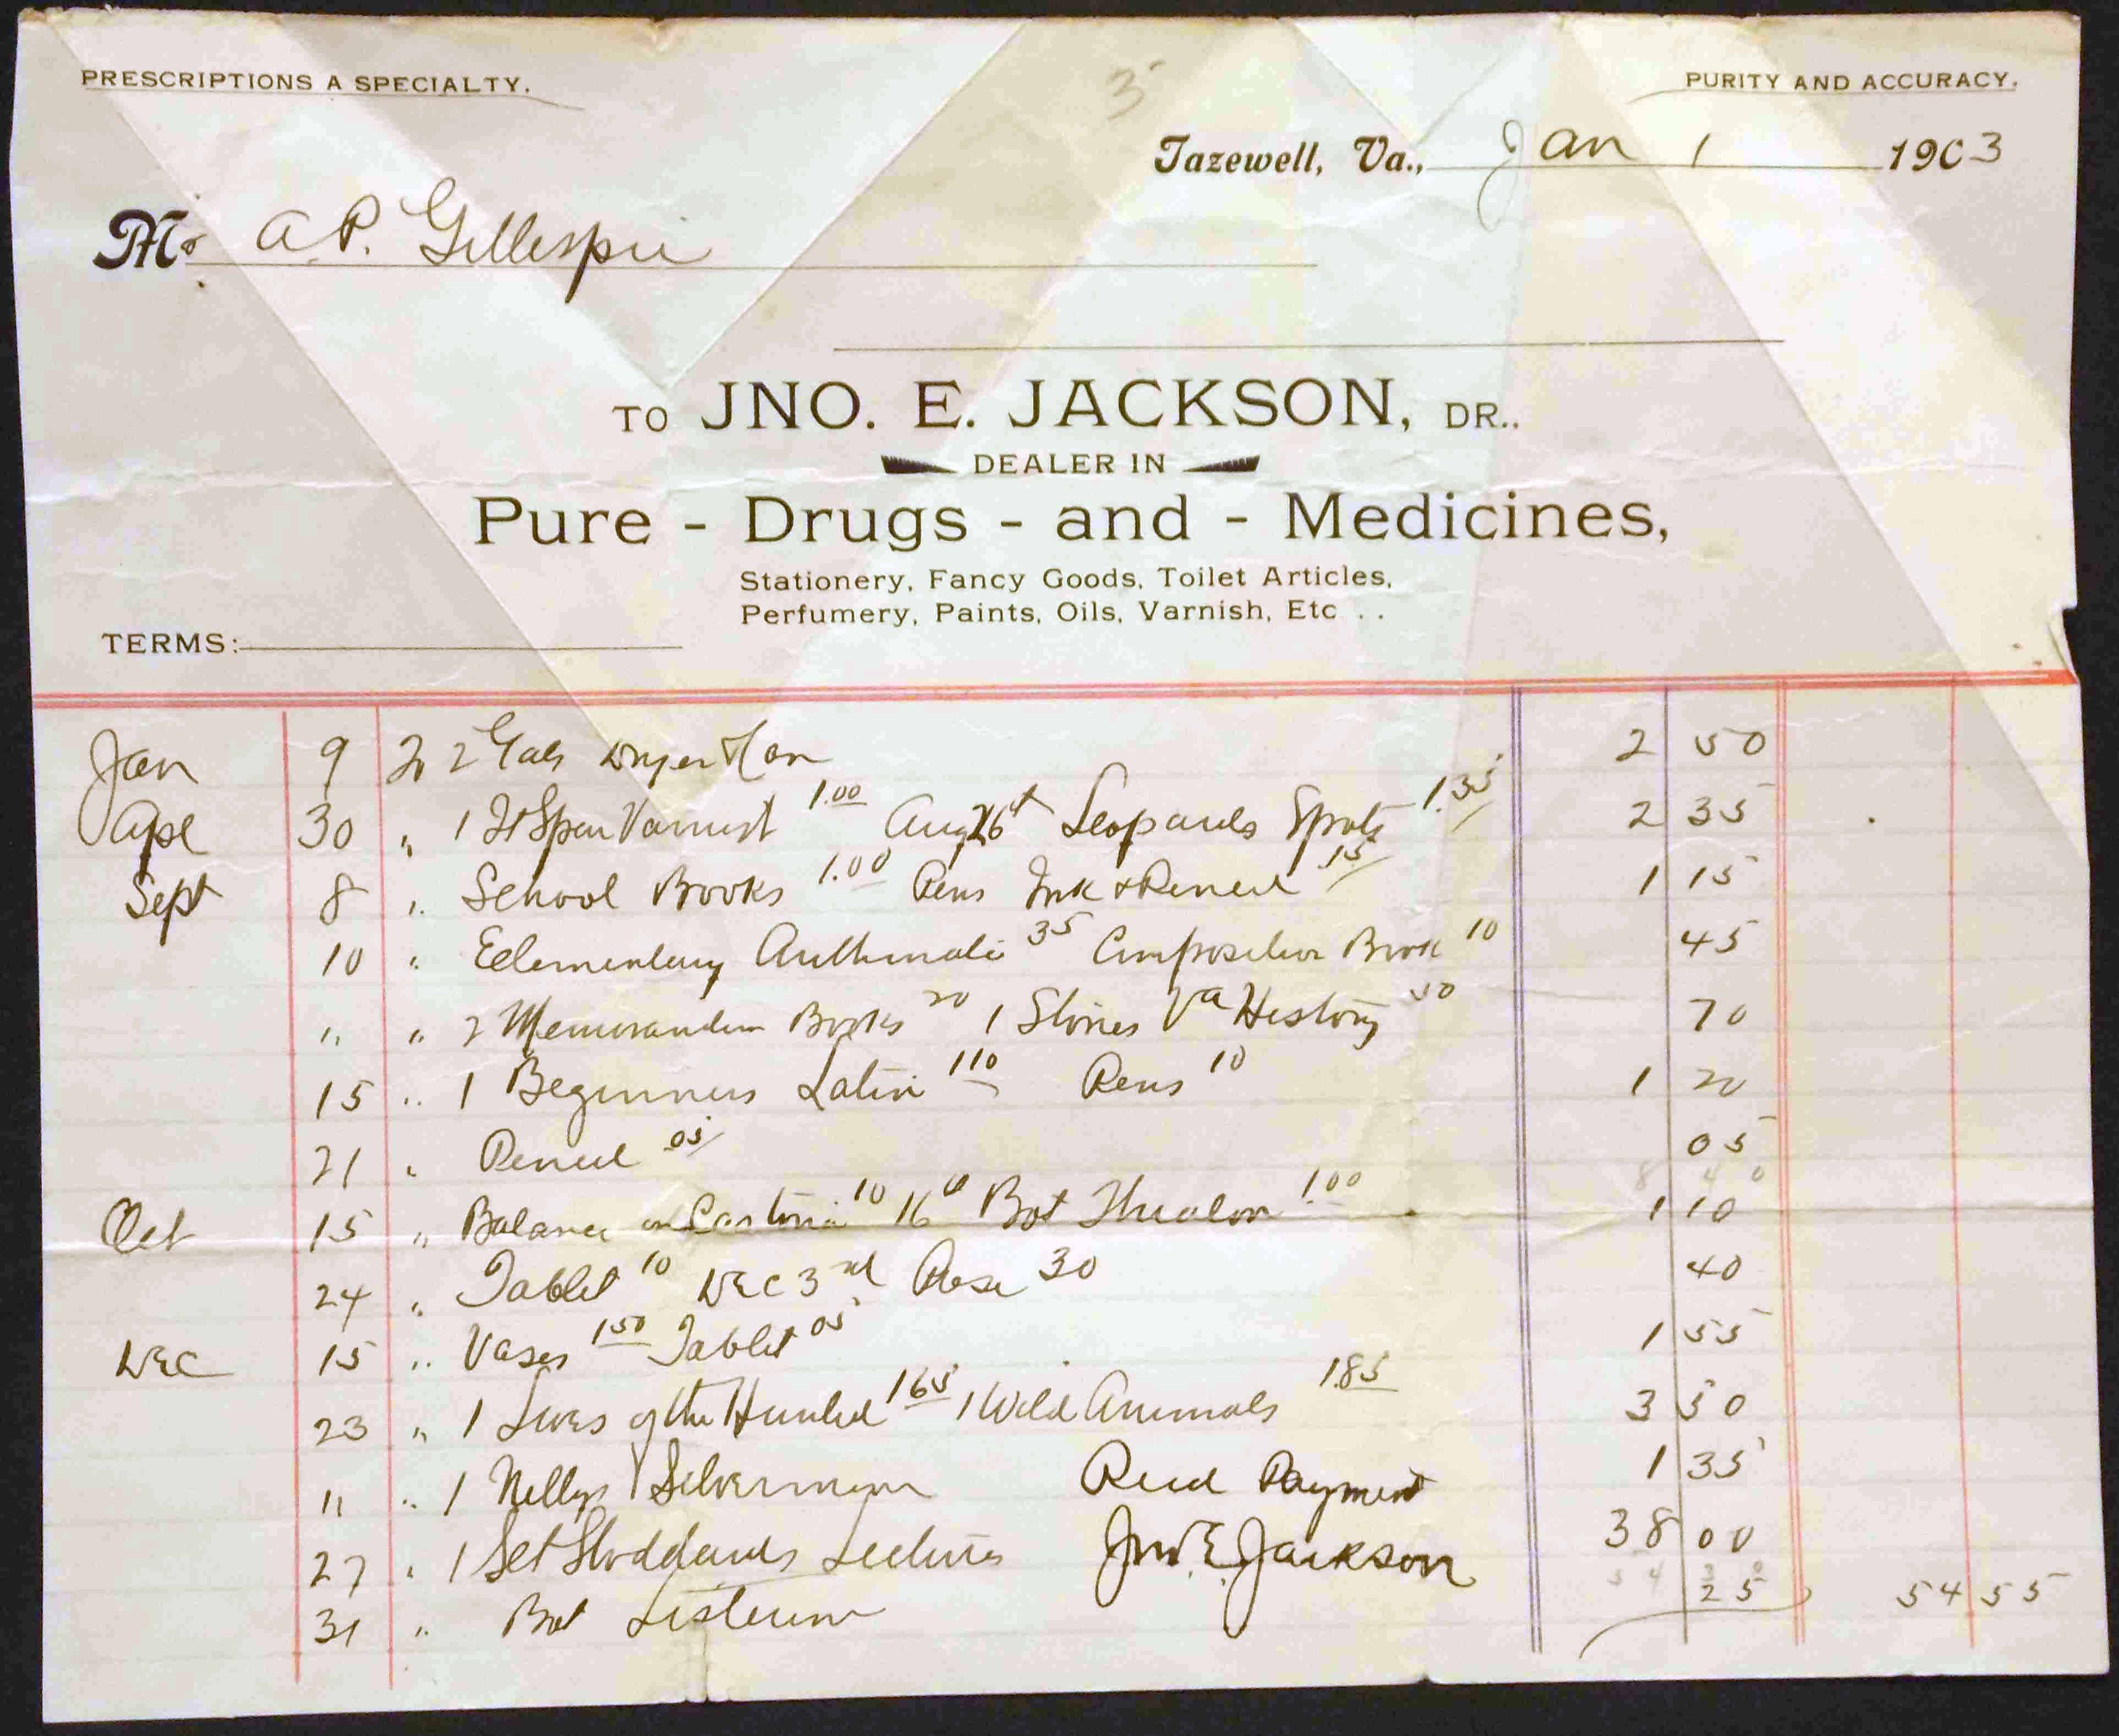 PRESCRIPTIONS A SPECIALTY.
3
PURITY AND ACCURACY.
Tazewell, Va., Jan 1 1903
M A. P. Gillespie
TO JNO. E. JACKSON, DR..
DEALER IN
Pure - Drugs - and - Medicines,
Stationery, Fancy Goods, Toilet Articles,
Perfumery, Paints, Oils, Varnish, Etc . .
TERMS:
Jan 9 To 2 Gals 2 50
Apl 30 " 1 Spar Varnish 1.00 Aug 26th Leopards Spots 1.35 2 35
Sept 8 " School Books 1.00 Pens Ink & Pencil 15 1 15
10 " Eelementary Arithmatic 35 Composition Book 10 45
" " 2 Memorandum Books 20 1 Stories Va History 50 70
15 " 1 Beginners Latin 110 Pens 10 1 20
21 " Pencil 05 05
8 40
Oct 15 " Balance on Castoria 10 16th Bot 1.00 1 10
24 " Tablet 10 Dec 3rd 30 40
Dec 15 " Vases 150 Tablet 05 1 55
23 " 1 Lives of the Hunted 165 1 Wild Animals 1.85 3 50
" " 1 Silverman Recd Payment 1 35
27 " 1 Set Stoddards Lectures Jno. E. Jackson 38 00
54 30
31 " Bot Listerine 25 54 55